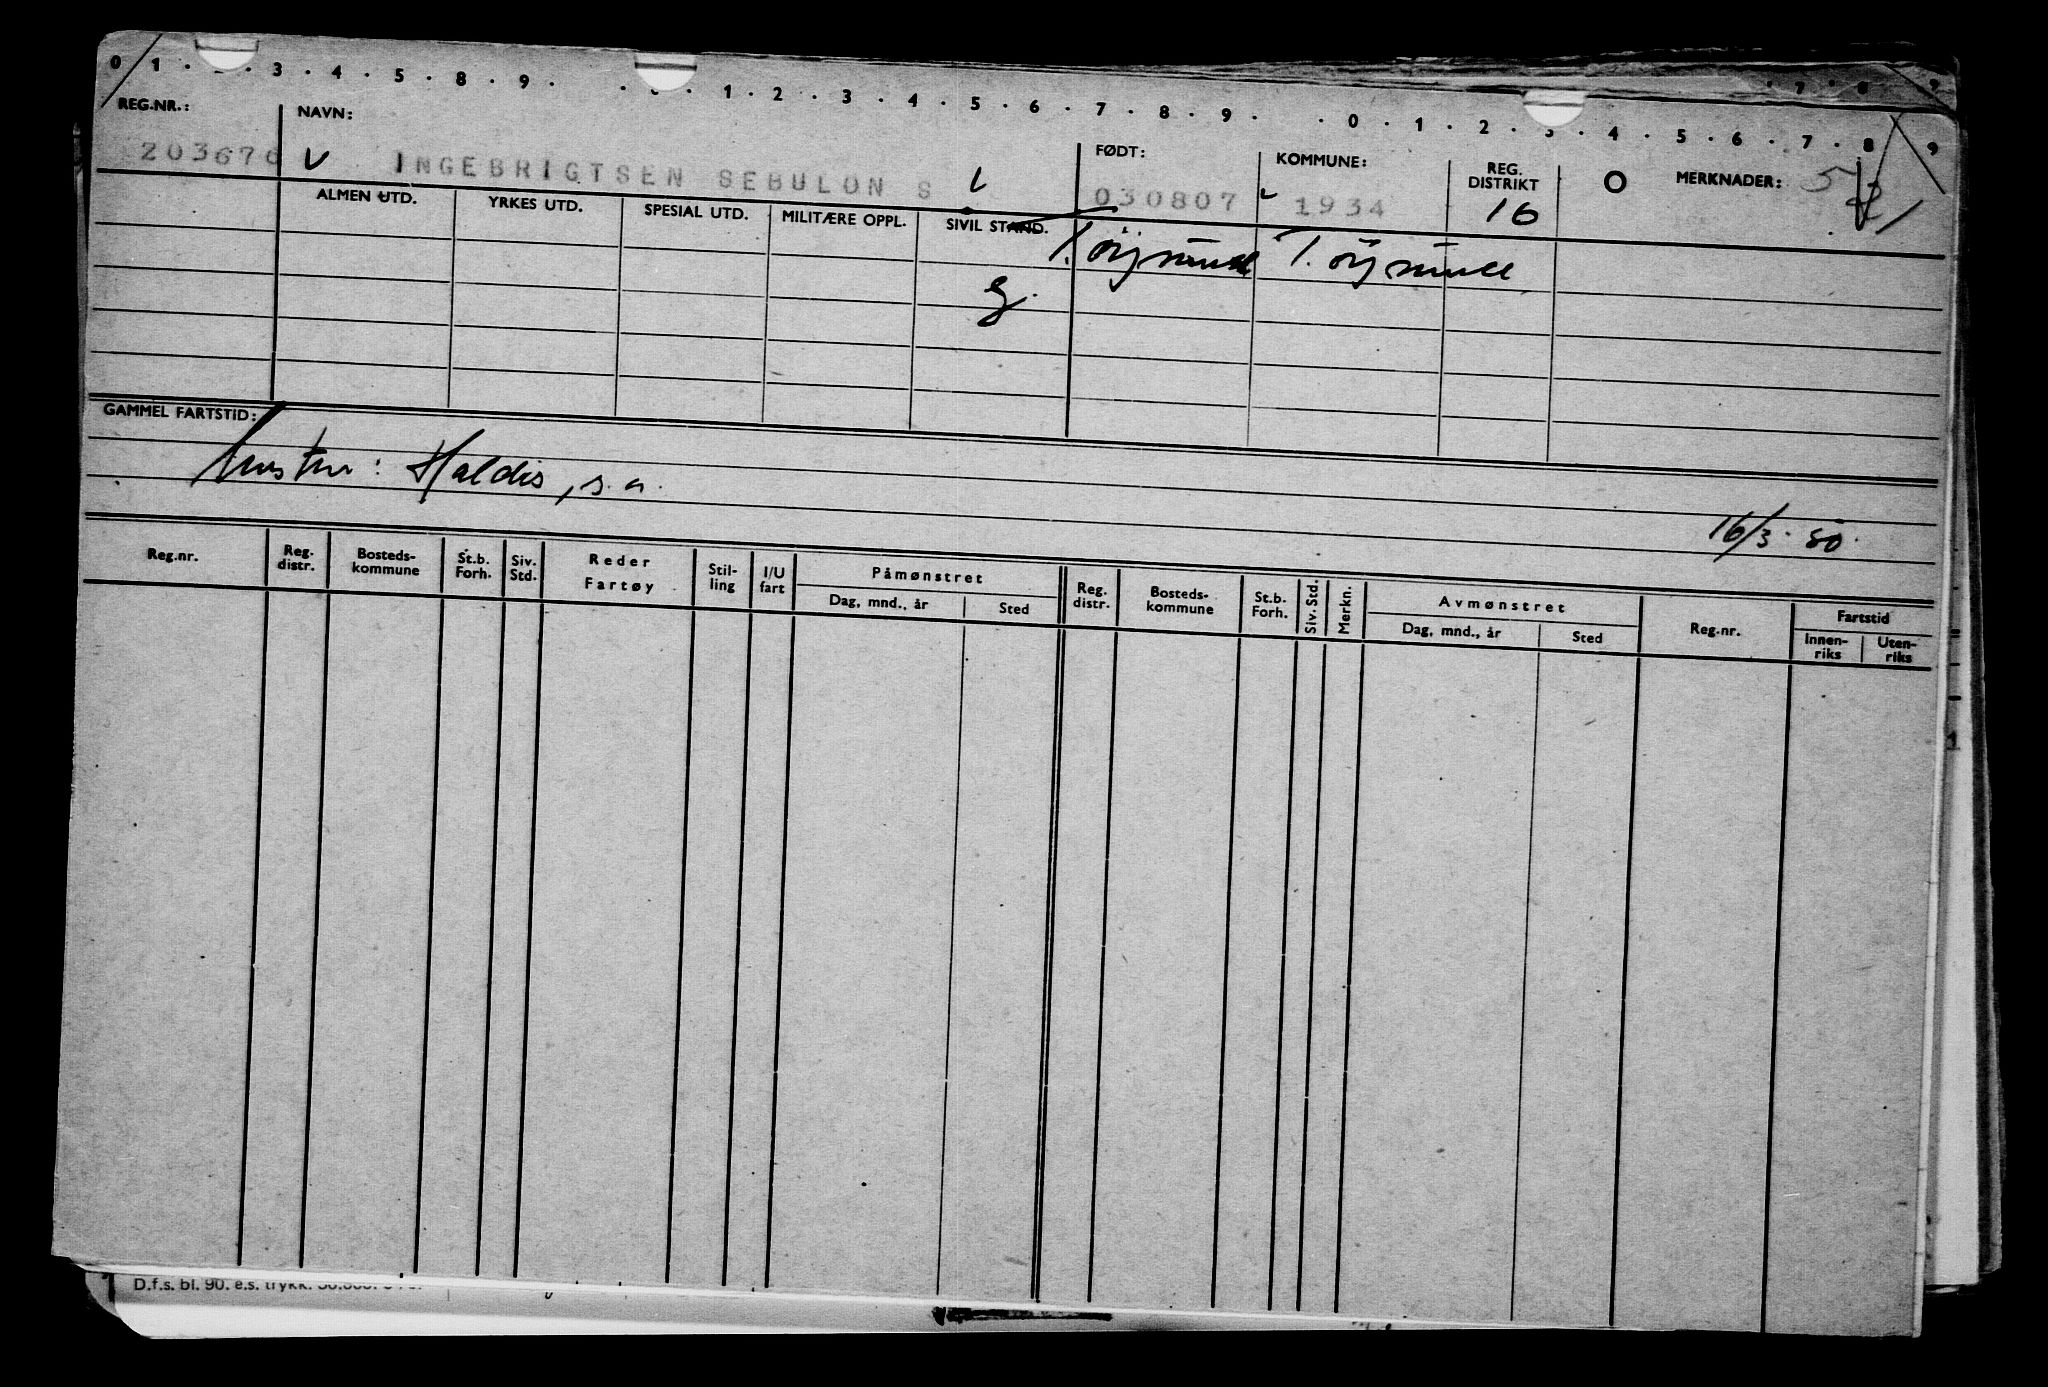 0 1 · · 3 · 4 · 5 · 8 · 9 · · · 1 · 2 · 3 · 4 · 5 · 6 · 7 · 8 · 9 · · 0 · 1 · 2 · 3 · 4 · 5 · 6 · 7 · 8 9
REG.NR.: NAVN: FØDT: KOMMUNE: REG. DISTRIKT O MERKNADER:
203676 INGEBRIGTSEN SEBULON S 030807 1934 16
ALMEN UTD. YRKES UTD. SPESIAL UTD. MILITÆRE OPPL. SIVIL STAND.
g.
GAMMEL FARTSTID:
: Haldis, s.a.
16/3 · 50
Reg.nr. Reg. distr. Bosteds-kommune St.b. Forh. Siv. Std. Reder Fartøy Stil-ling I/U fart Påmønstret Reg. distr. Bosteds-kommune St.b. Forh. Siv. Std. Merkn. Avmønstret Reg.nr. Fartstid
Dag, mnd., år Sted Dag, mnd., år Sted Innen-riks Uten-riks
D.f.s. bl. 90. e.s. trykk.